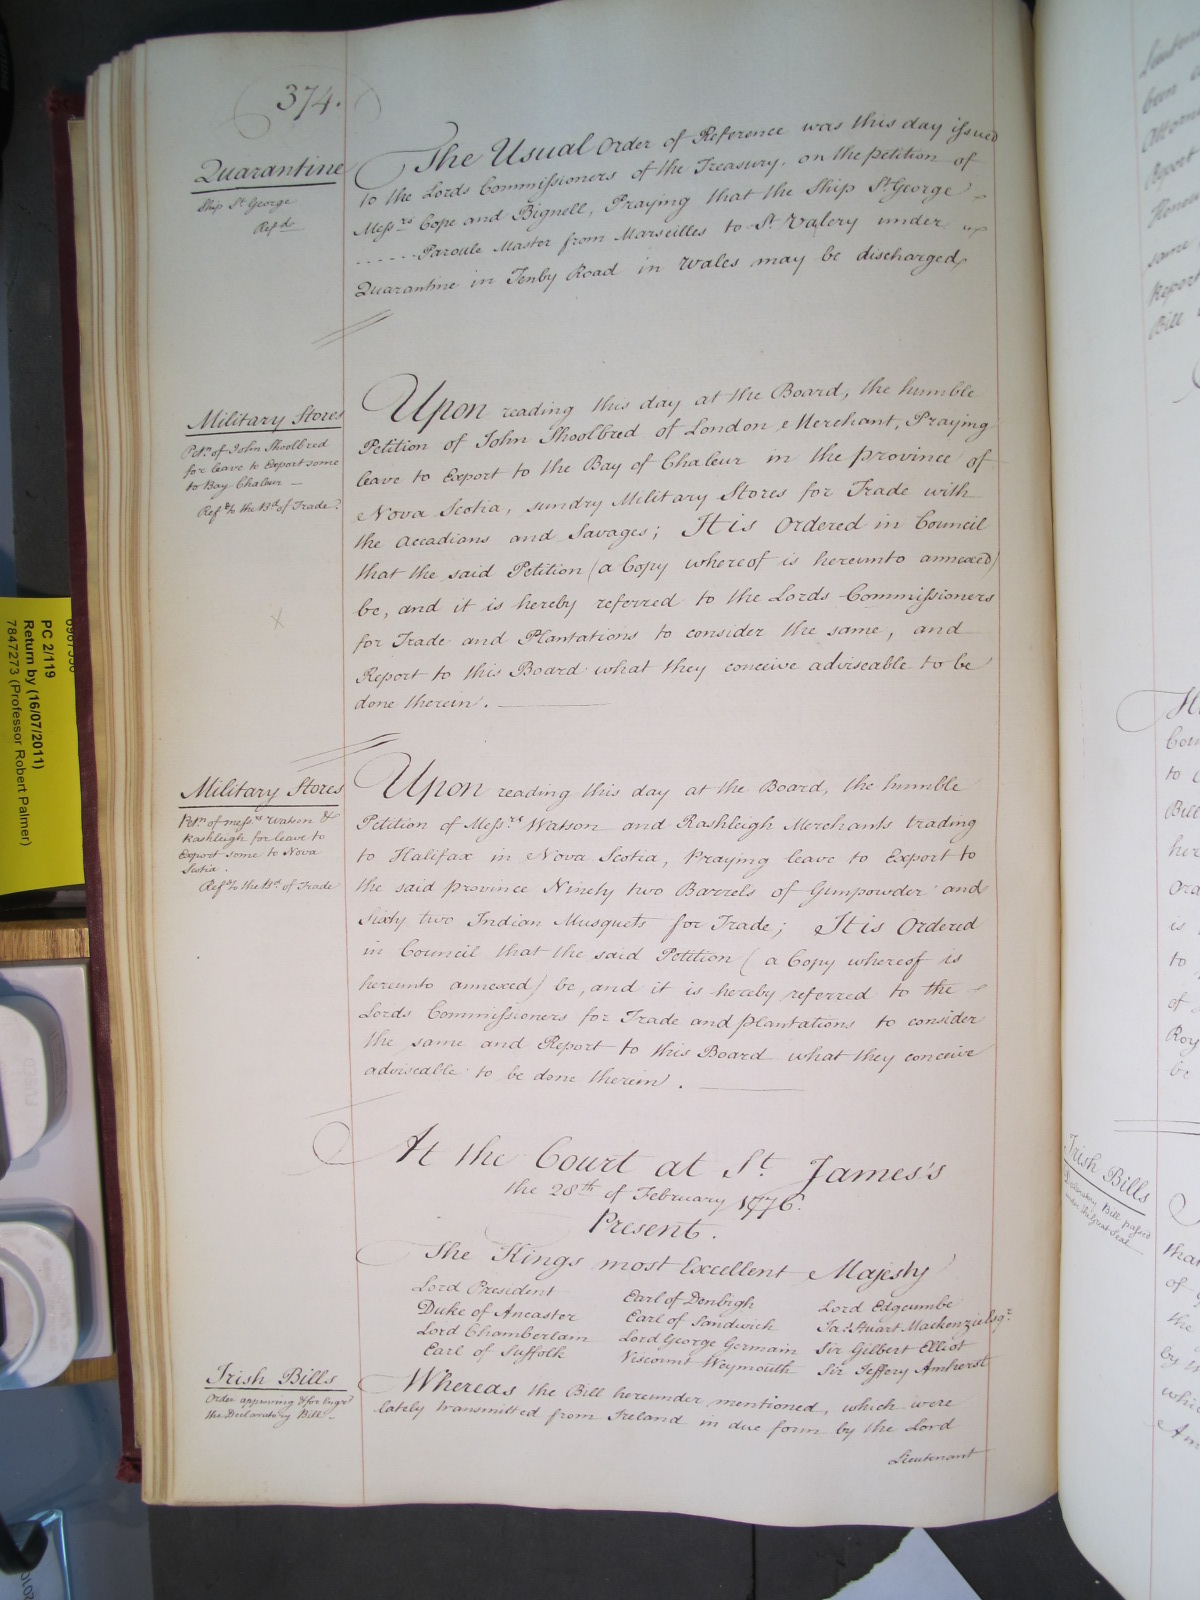 374.
Quarantine
Ship St. George
Refd.
The Usual Order of Reference was this day issued
to the Lords Commissioners of the Treasury, on the petition of
Messrs. Cope and Bignell, Praying that the Ship St. George
......Paroule Master from Marseilles to St. Valery under
Quarantine in Tenby Road in Wales may be discharged
Military Stores
Petn. of John Shoolbred
for leave to Export some
to Bay Chaleur —
Refd. to the Bd. of Trade
Upon reading this day at the Board, the humble
Petition of John Shoolbred of London Merchant, Praying
leave to Export to the Bay of Chaleur in the province of
Nova Scotia, sundry Military Stores for Trade with
the Accadians and Savages; It is Ordered in Council
that the said Petition (a Copy whereof is hereunto annexed)
be, and it is hereby referred to the Lords Commissioners
for Trade and Plantations to consider the same, and
Report to this Board what they conceive adviseable to be
done therein.
Military Stores
Petn. of Messrs. Watson &
Rashleigh for leave to
Export some to Nova
Scotia.
Refd. to the Bd. of Trade
Upon reading this day at the Board, the humble
Petition of Messrs. Watson and Rashleigh Merchants trading
to Halifax in Nova Scotia, Praying leave to Export to
the said province Ninety two Barrels of Gunpowder and
Sixty two Indian Musquets for Trade; It is Ordered
in Council that the said Petition (a Copy whereof is
hereunto annexed) be, and it is hereby referred to the
Lords Commissioners for Trade and plantations to consider
the same and Report to this Board what they conceive
adviseable to be done therein.
At the Court at St. James's
the 28th of February 1776.
Present.
The Kings most Excellent Majesty
Lord President Earl of Denbigh Lord Edgcumbe
Duke of Ancaster Earl of Sandwich Jas. Stuart Mackenzie Esqr.
Lord Chamberlain Lord George Germain Sir Gilbert Elliot
Earl of Suffolk Viscount Weymouth Sir Jeffery Amherst
Irish Bills
Order approving & for Engrg.
the Declaratory Bill
Whereas the Bill hereunder mentioned, which were
lately transmitted from Ireland in due form by the Lord
Lieutenant
PC 2/119
Return by (16/07/2011)
7847273 (Professor Robert Palmer)
Irish Bills
Declaratory Bill passed
under the Great Seal